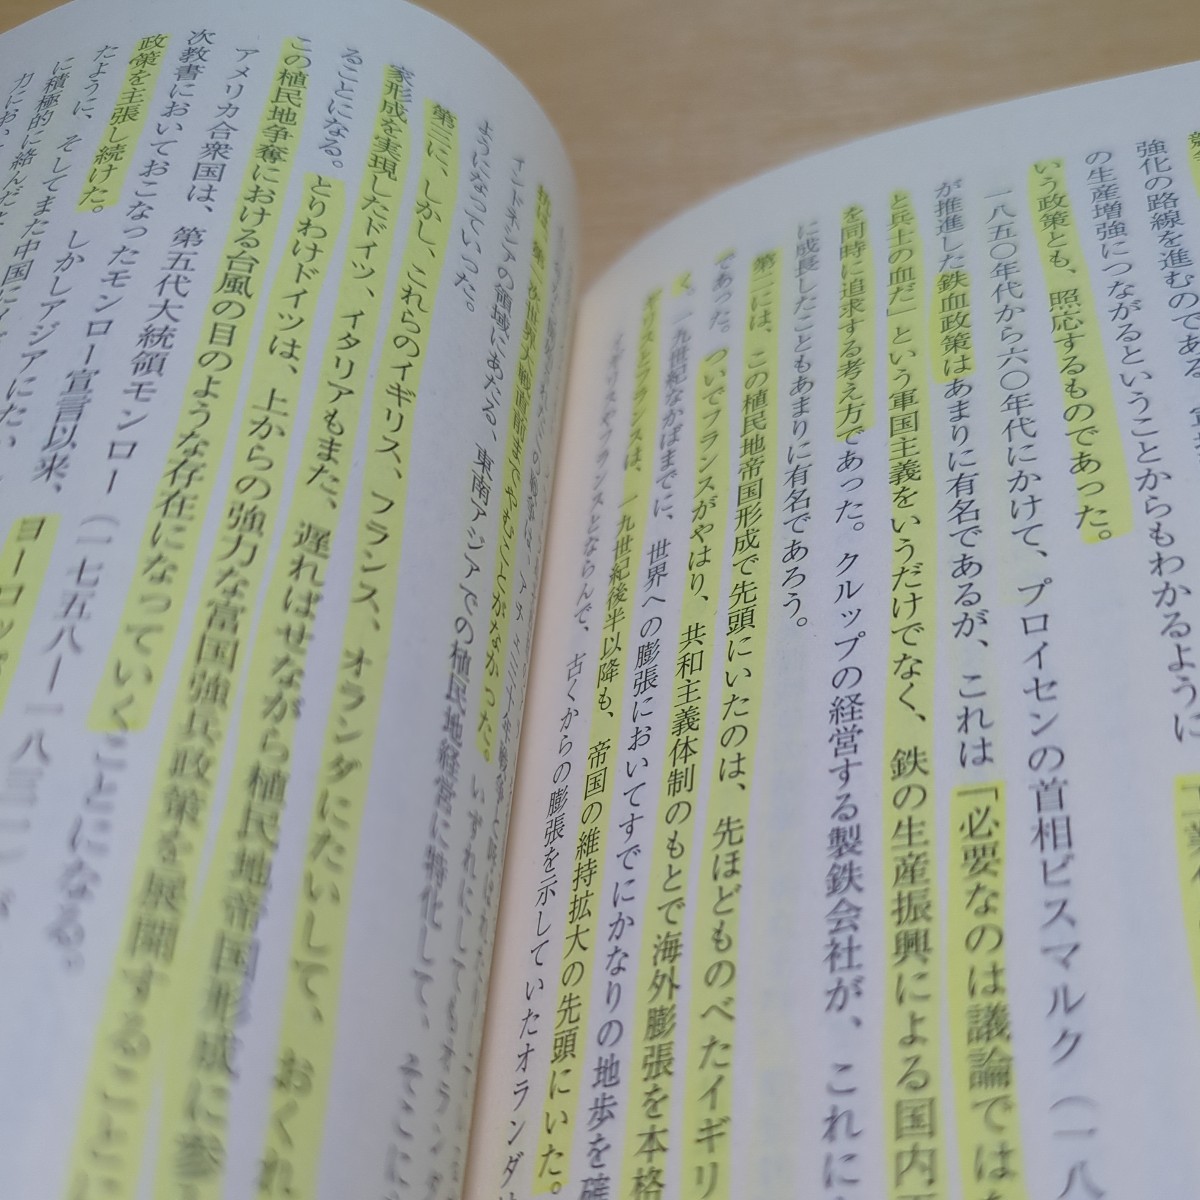 強化の路線を進むのである
の生産増強につながるということからもわかるように
いう政策とも、照応するものであった。
一八五〇年代から六〇年代にかけて、プロイセンの首相ビスマルク(一八
が推進した鉄血政策はあまりに有名であるが、これは「必要なのは議論では
と兵士の血だ」という軍国主義をいうだけでなく、鉄の生産振興による国内
を同時に追求する考え方であった。クルップの経営する製鉄会社が、これに
に成長したこともあまりに有名であろう。
第二には、この植民地帝国形成で先頭にいたのは、先ほどものべたイギリ
であった。ついでフランスがやはり、共和主義体制のもとで海外膨張を本格
く。一九世紀なかばまでに、世界への膨張においてすでにかなりの地歩を確
ギリスとフランスは、一九世紀後半以降も、帝国の維持拡大の先頭にいた。
イギリスやフランスとならんで、古くからの膨張を示していたオランダ
第一次世界大戦直前までやむことがなかった。いずれにしてもオランダ
インドネシアの領域にあたる、東南アジアでの植民地経営に特化して、そこに
ようになっていった。
第三に、しかし、これらのイギリス、フランス、オランダにたいして、おくれ
家形成を実現したドイツ、イタリアもまた、遅ればせながら植民地帝国形成に参
ることになる。とりわけドイツは、上からの強力な富国強兵政策を展開することに
この植民地争奪における台風の目のような存在になっていくことになる。
アメリカ合衆国は、第五代大統領モンロー(一七五八―一八三一)が
次教書においておこなったモンロー宣言以来、ヨーロッパ
政策を主張し続けた。しかしアジアにたい
たように、そしてまた中国に
に積極的に絡んだ